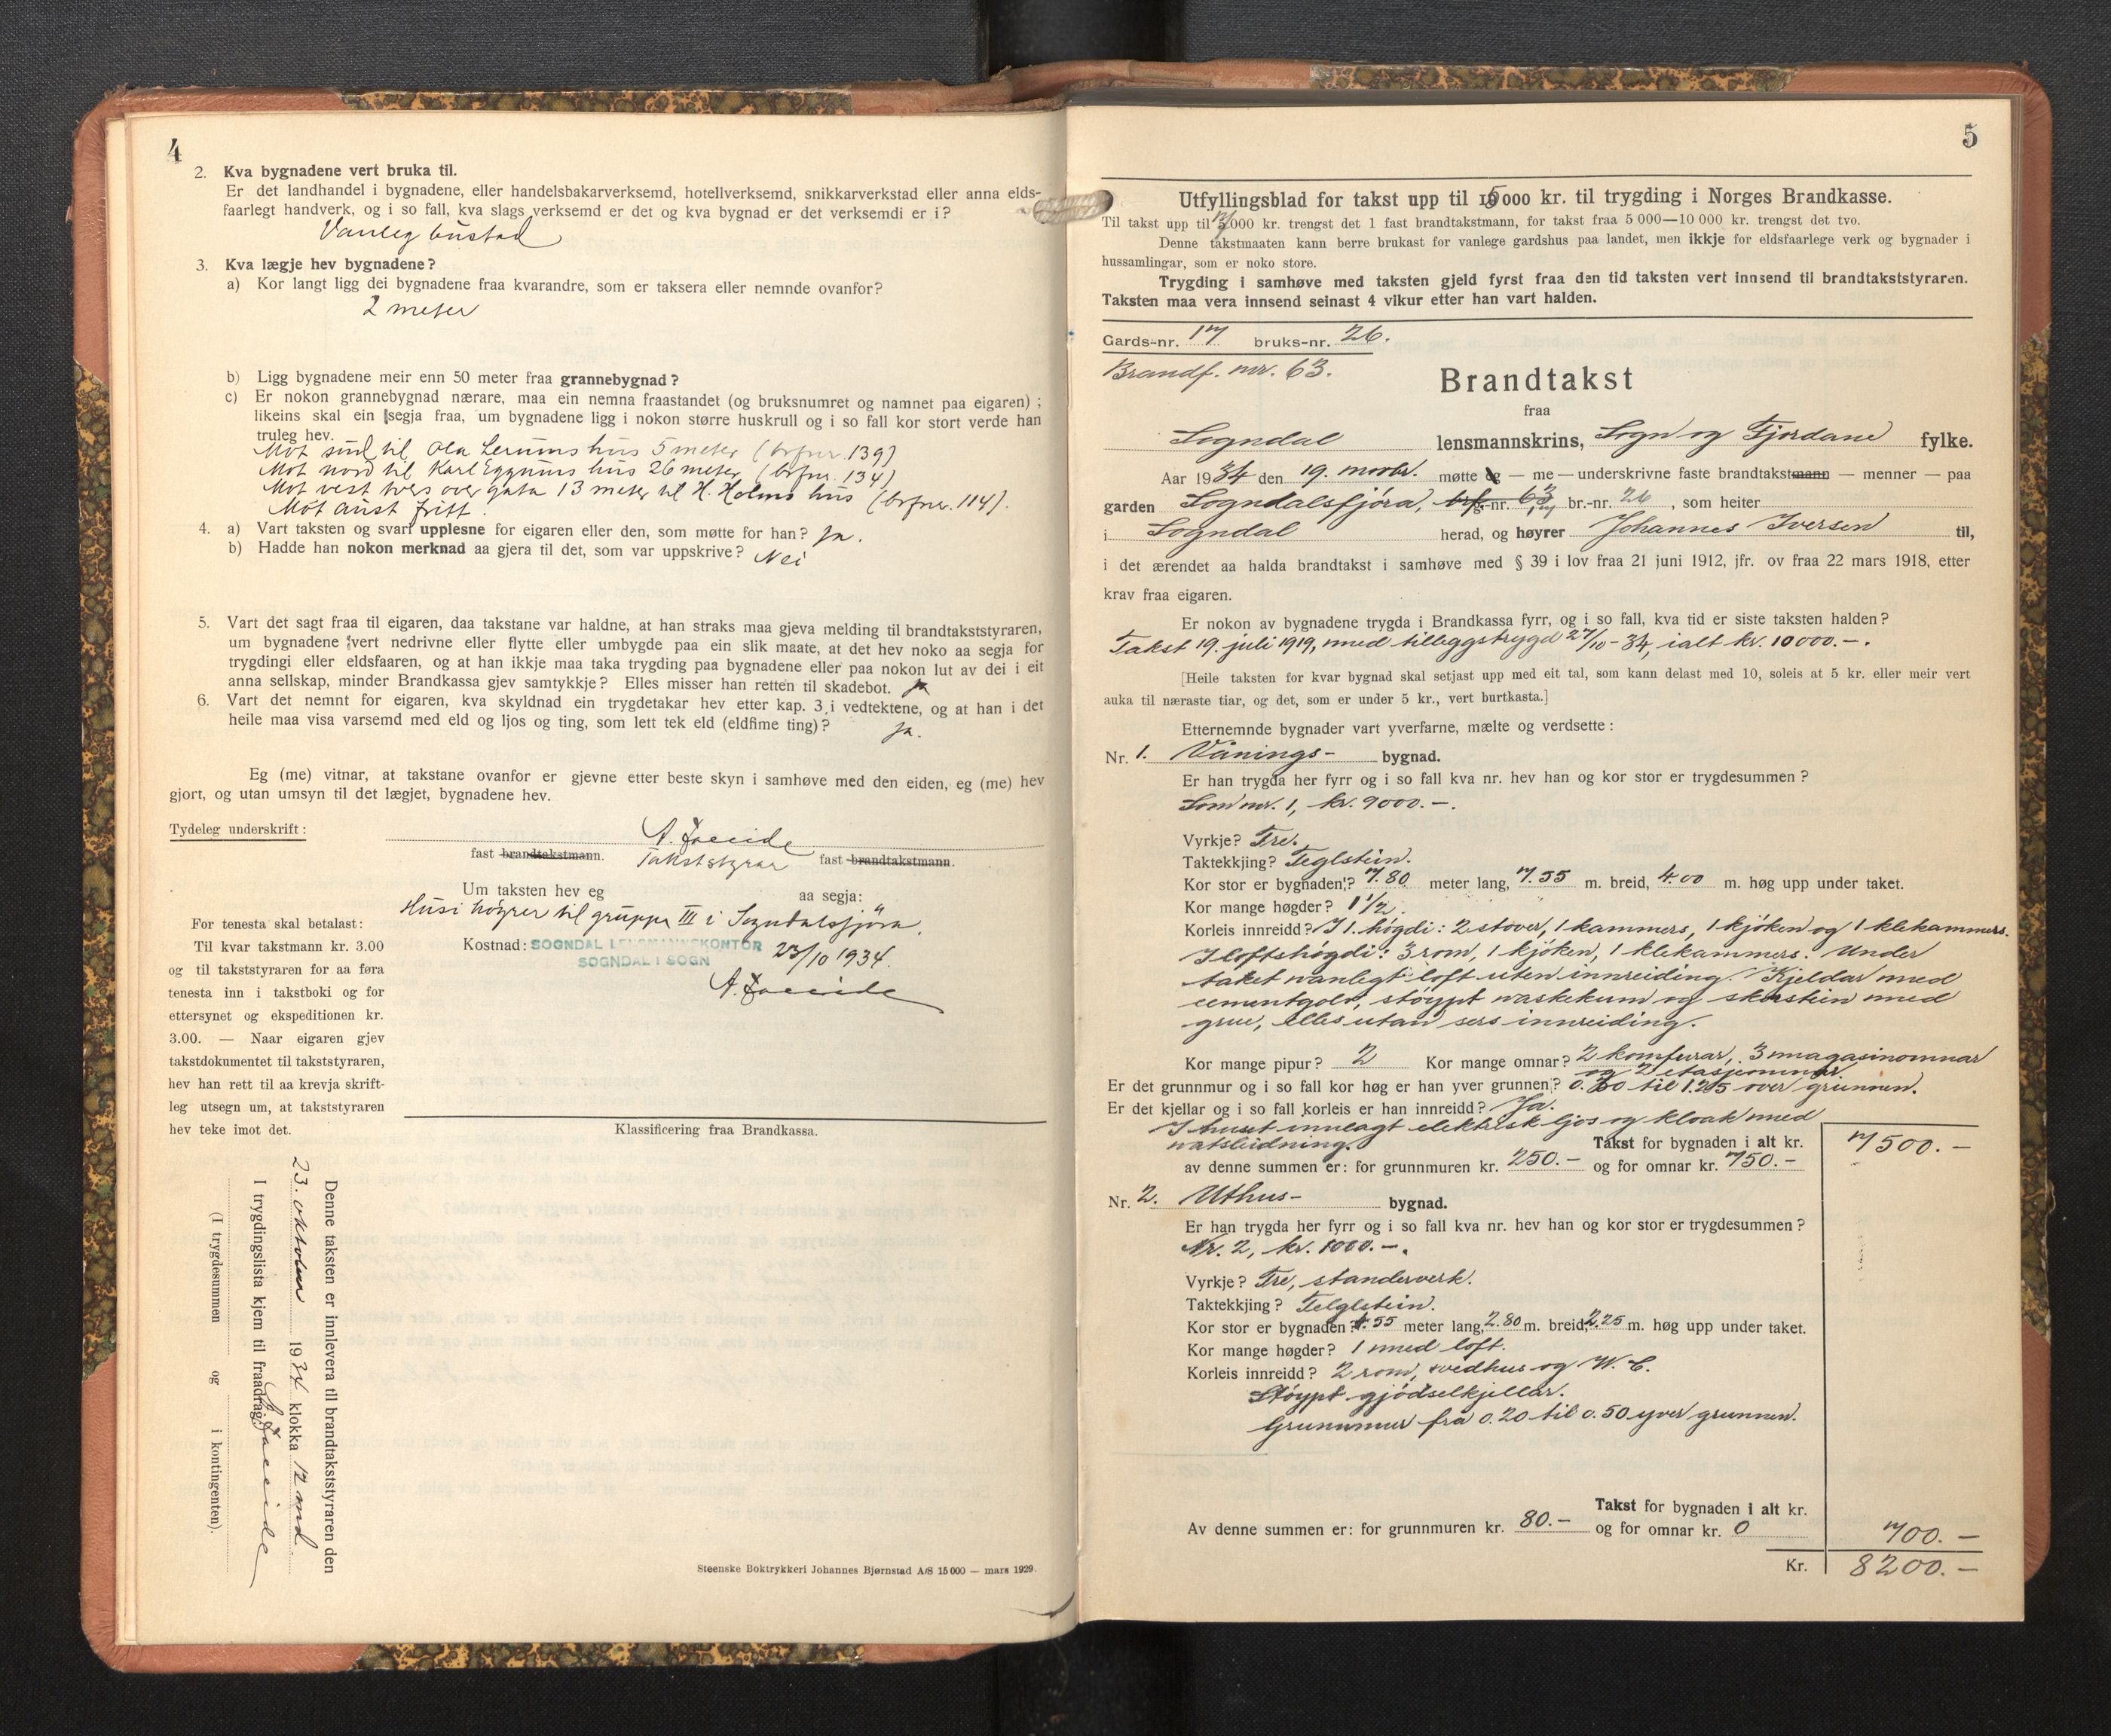 4
2. Kva bygnadene vert bruka til.
Er det landhandel i bygnadene, eller handelsbakarverksemd, hotellverksemd, snikkarverkstad eller anna elds-
faarlegt handverk, og i so fall, kva slags verksemd er det og kva bygnad er det verksemdi er i?
Vanleg bustad
3. Kva lægje hev bygnadene?
a) Kor langt ligg dei bygnadene fraa kvarandre, som er taksera eller nemnde ovanfor?
2 meter
b) Ligg bygnadene meir enn 50 meter fraa grannebygnad?
c) Er nokon grannebygnad nærare, maa ein nemna fraastandet (og bruksnumret og namnet paa eigaren);
likeins skal ein segja fraa, um bygnadene ligg i nokon større huskrull og i so fall kor stort verde han
truleg hev.
Mot sud til Ola Lerums hus 5 meter (brfnr. 139)
Mot nord til Karl Eggums hus 26 meter (brfnr. 134)
Mot vest tvers over gata 13 meter til H. Holms hus (brfnr. 114).
Mot aust fritt.
4. a) Vart taksten og svari upplesne for eigaren eller den, som møtte for han? Ja.
b) Hadde han nokon merknad aa gjera til det, som var uppskrive? Nei
5. Vart det sagt fraa til eigaren, daa takstane var haldne, at han straks maa gjeva melding til brandtakststyraren,
um bygnadene vert nedrivne eller flytte eller umbygde paa ein slik maate, at det hev noko aa segja for
trygdingi eller eldsfaaren, og at han ikkje maa taka trygding paa bygnadene eller paa nokon lut av dei i eit
anna sellskap, minder Brandkassa gjev samtykkje? Elles misser han retten til skadebot. Ja
6. Vart det nemnt for eigaren, kva skyldnad ein trygdetakar hev etter kap. 3 i vedtektene, og at han i det
heile maa visa varsemd med eld og ljos og ting, som lett tek eld (eldfime ting)? Ja.
Eg (me) vitnar, at takstane ovanfor er gjevne etter beste skyn i samhøve med den eiden, eg (me) hev
gjort, og utan umsyn til det lægjet, bygnadene hev.
Tydeleg underskrift:
fast brandtakstmann. Takststyrar fast brandtakstmann.
Um taksten hev eg aa segja:
Husi høyrer til gruppe III i Sogndalsfjøra.
Kostnad: SOGNDAL LENSMANNSKONTOR
SOGNDAL I SOGN
23/10 1934.
For tenesta skal betalast:
Til kvar takstmann kr. 3.00
og til takststyraren for aa føra
tenesta inn i takstboki og for
ettersynet og ekspeditionen kr.
3.00. — Naar eigaren gjev
takstdokumentet til takststyraren,
hev han rett til aa krevja skrift-
leg utsegn um, at takststyraren
hev teke imot det.
Klassificering fraa Brandkassa.
Denne taksten er innlevera til brandtakststyraren den
23. oktober 1934 klokka 12 md.
I trygdingslista kjem til fraadrag:
(I trygdesummen og i kontingenten).
Steenske Boktrykkeri Johannes Bjørnstad A/S 15 000 — mars 1929.
5
Utfyllingsblad for takst upp til 15000 kr. til trygding i Norges Brandkasse.
Til takst upp til 7000 kr. trengst det 1 fast brandtakstmann, for takst fraa 5 000—10 000 kr. trengst det tvo.
Denne takstmaaten kann berre brukast for vanlege gardshus paa landet, men ikkje for eldsfaarlege verk og bygnader i
hussamlingar, som er noko store.
Trygding i samhøve med taksten gjeld fyrst fraa den tid taksten vert innsend til brandtakststyraren.
Taksten maa vera innsend seinast 4 vikur etter han vart halden.
Gards-nr. 17 bruks-nr. 26.
Brandf. nr. 63.
Brandtakst
fraa
Sogndal lensmannskrins, Sogn og Fjordane fylke.
Aar 1934 den 19. novbr. møtte eg — me — underskrivne faste brandtakstmann — menner — paa
garden Sogndalsfjøra, brf.-nr. 63 br.-nr. 26, som heiter
i Sogndal herad, og høyrer Johannes Iversen til,
i det ærendet aa halda brandtakst i samhøve med § 39 i lov fraa 21 juni 1912, jfr. ov fraa 22 mars 1918, etter
krav fraa eigaren.
Er nokon av bygnadene trygda i Brandkassa fyrr, og i so fall, kva tid er siste taksten halden?
Takst 19. juli 1919, med tilleggstrygd 27/10-34, ialt kr. 10000.-.
[Heile taksten for kvar bygnad skal setjast upp med eit tal, som kann delast med 10, soleis at 5 kr. eller meir vert
auka til næraste tiar, og det, som er under 5 kr., vert burtkasta.]
Etternemnde bygnader vart yverfarne, mælte og verdsette:
Nr. 1. Vånings- bygnad.
Er han trygda her fyrr og i so fall kva nr. hev han og kor stor er trygdesummen?
Som nr. 1, kr. 9000.-.
Vyrkje? Tre.
Taktekkjing? Teglstein.
Kor stor er bygnaden? 7.80 meter lang, 7.55 m. breid, 4.00 m. høg upp under taket.
Kor mange høgder? 1 1/2.
Korleis innreidd? I 1. høgdi: 2 stover, 1 kammers, 1 kjøken og 1 klekammers.
I loftshøgdi: 3 rom, 1 kjøken, 1 klekammers. Under
taket vanlegt loft uten innreiding. Kjeldar med
cementgolv, støypt vaskekum og skorstein med
grue, elles utan sers innreiding.
Kor mange pipur? 2 Kor mange omnar? 2 komfurar, 3 magasinomnar
og 2 etasjeomnar
Er det grunnmur og i so fall kor høg er han yver grunnen? 0.60 til 1.25 over grunnen.
Er det kjellar og i so fall korleis er han innreidd? Ja.
I huset innlagt elektrisk ljos og kloak med
vatsleidning.
Takst for bygnaden i alt kr. 7500.-
av denne summen er: for grunnmuren kr. 250.- og for omnar kr. 750.-
Nr. 2. Uthus- bygnad.
Er han trygda her fyrr og i so fall kva nr. hev han og kor stor er trygdesummen?
Nr. 2, kr. 1000.-.
Vyrkje? Tre, standerverk.
Taktekkjing? Telglstein.
Kor stor er bygnaden? 4.55 meter lang, 2.80 m. breid, 2.25 m. høg upp under taket.
Kor mange høgder? 1 med loft.
Korleis innreidd? 2 rom, vedhus og W. C.
Støypt gjødselkjellar.
Grunnmur frå 0.20 til 0.50 yver grunnen.
Takst for bygnaden i alt kr.
Av denne summen er: for grunnmuren kr. 80.- og for omnar kr. 0 700.-
Kr. 8200.-